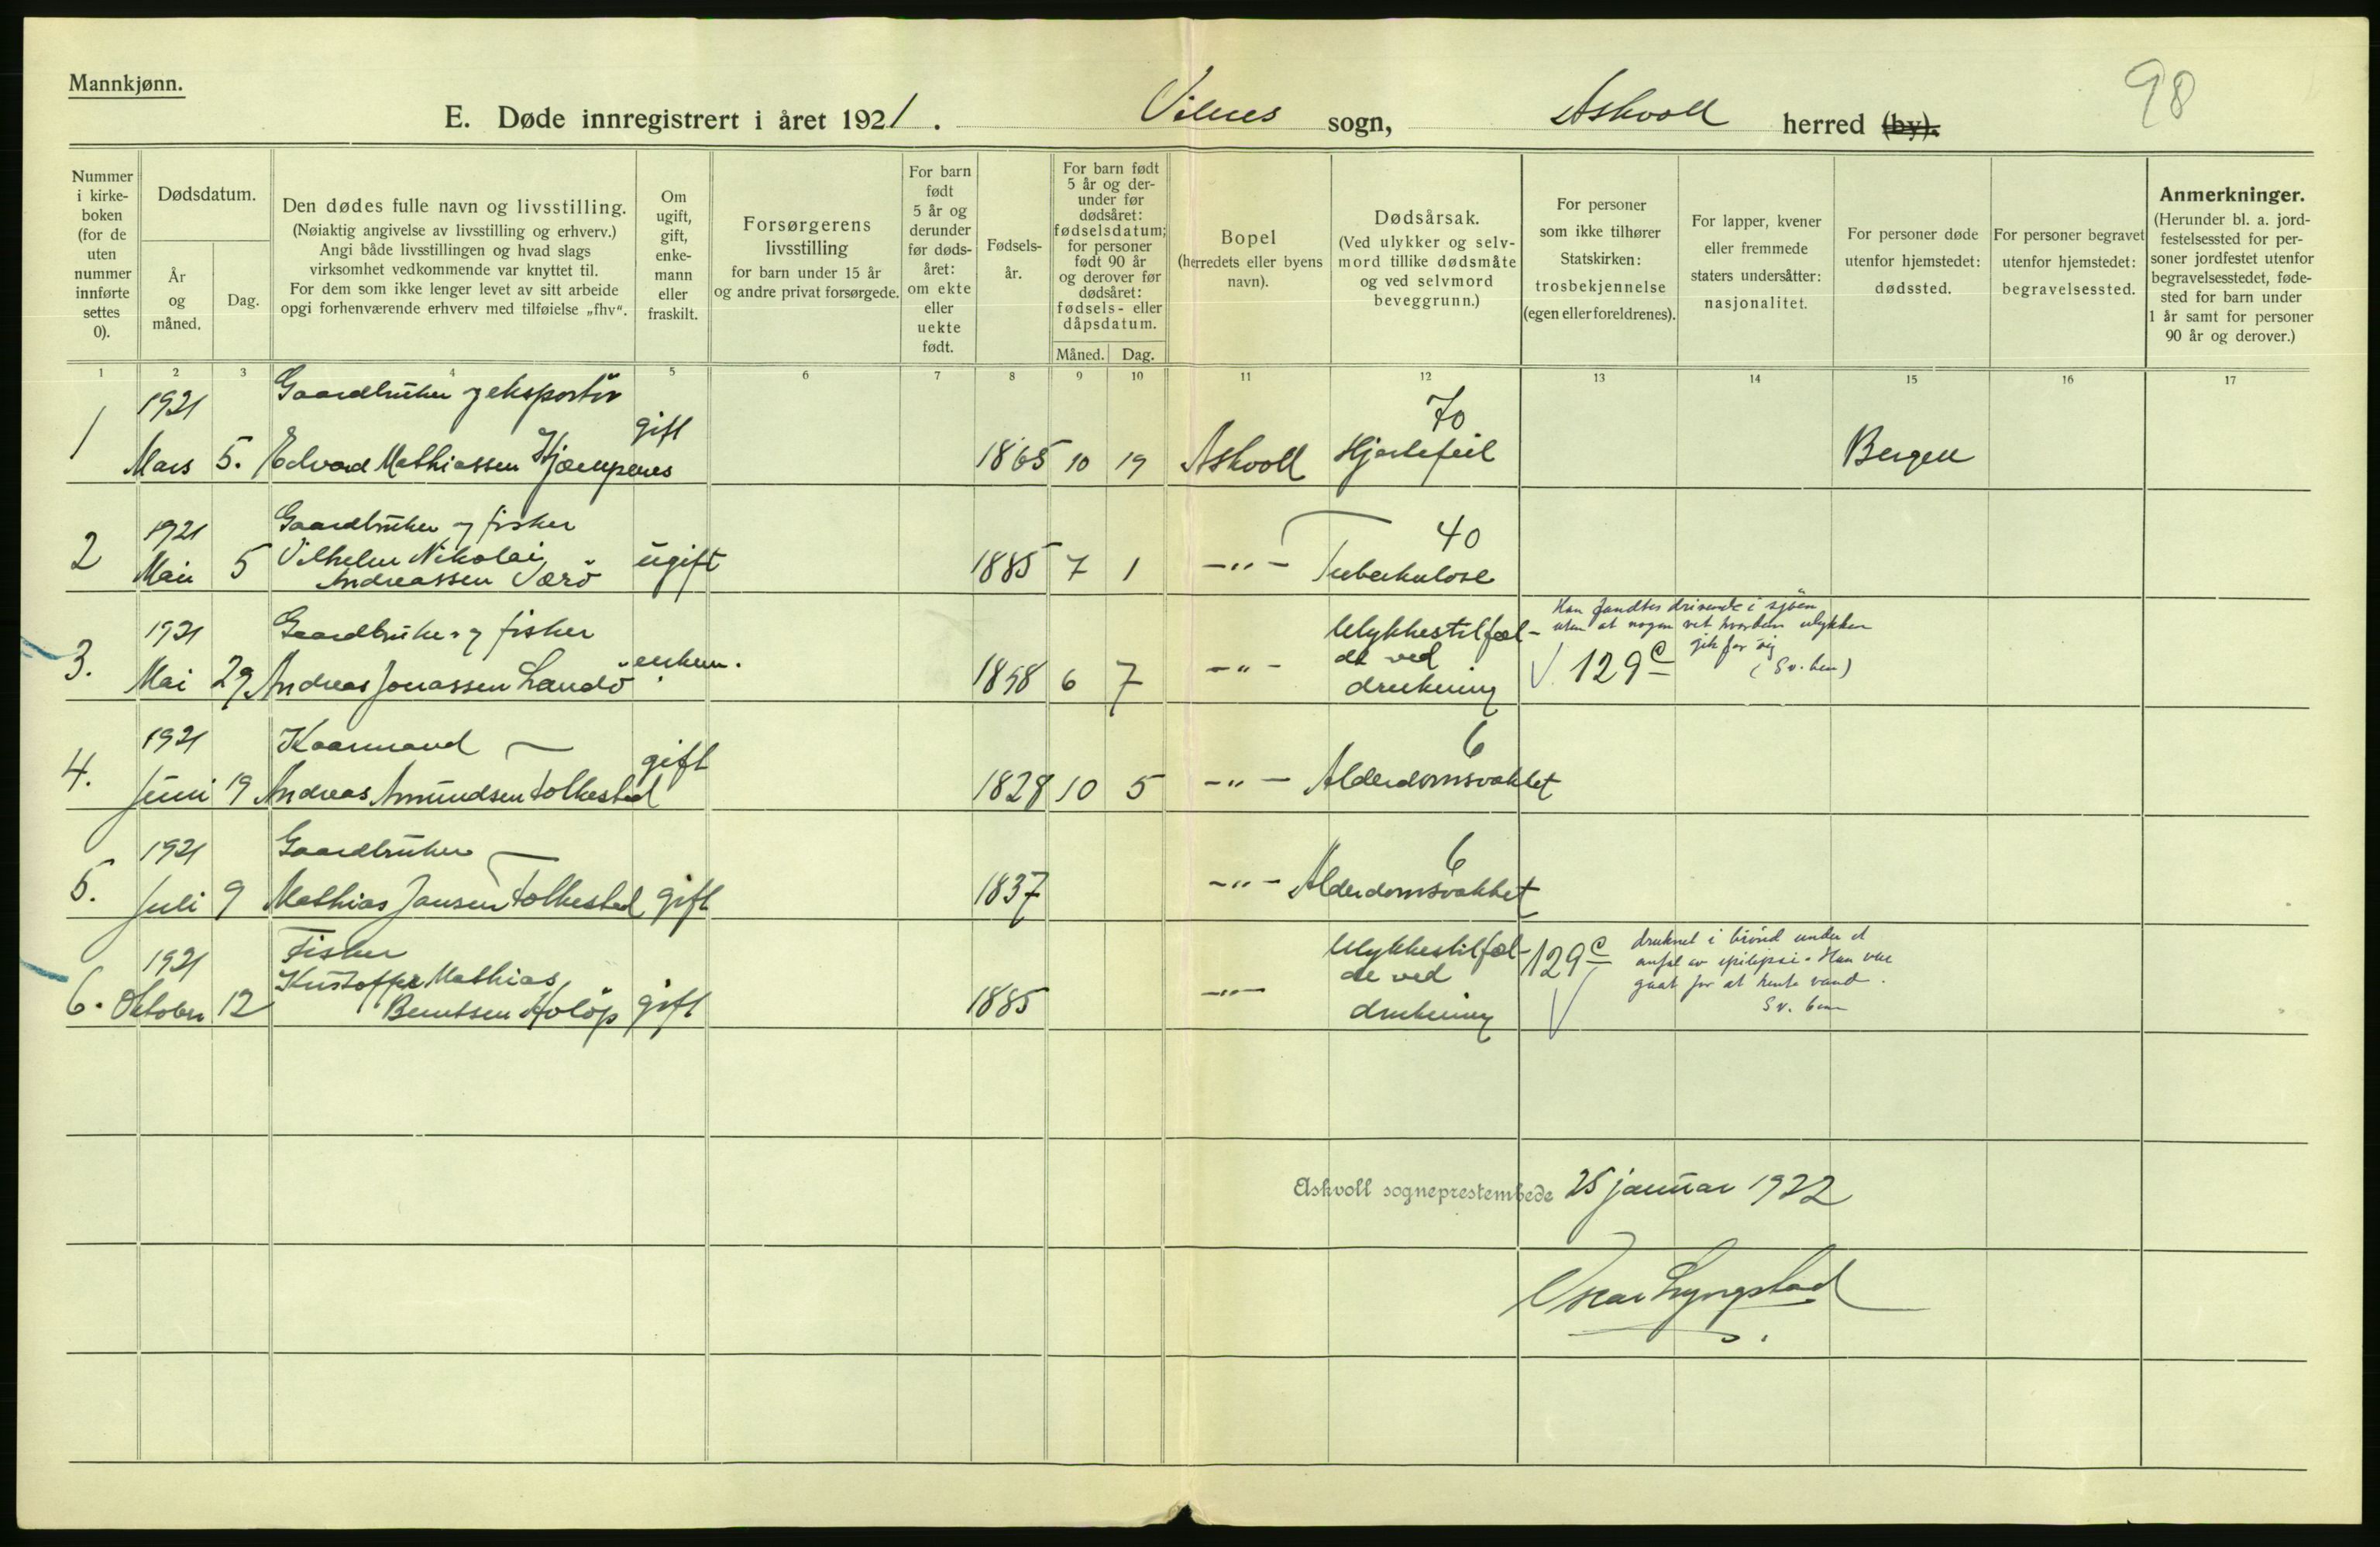 Mannkjønn.
98
E. Døde innregistrert i året 1921. Vilnes sogn, Askvoll herred (by).
Nummer i kirke-boken (for de uten nummer innførte settes 0).
Dødsdatum.
År og måned.
Dag.
Den dødes fulle navn og livsstilling.
(Nøiaktig angivelse av livsstilling og erhverv.)
Angi både livsstillingen og hvad slags
virksomhet vedkommende var knyttet til.
For dem som ikke lenger levet av sitt arbeide
opgi forhenværende erhverv med tilføielse „fhv“.
Om ugift, gift, enke-mann eller fraskilt.
Forsørgerens
livsstilling
for barn under 15 år
og andre privat forsørgede.
For barn født 5 år og derunder før døds-året: om ekte eller uekte født.
Fødsels-år.
For barn født 5 år og der-under før dødsåret: fødselsdatum; for personer født 90 år og derover før dødsåret: fødsels- eller dåpsdatum.
Måned. Dag.
Bopel
(herredets eller byens
navn).
Dødsårsak.
(Ved ulykker og selv-
mord tillike dødsmåte
og ved selvmord
beveggrunn.)
For personer
som ikke tilhører
Statskirken:
trosbekjennelse
(egen eller foreldrenes).
For lapper, kvener
eller fremmede
staters undersåtter:
nasjonalitet.
For personer døde
utenfor hjemstedet:
dødssted.
For personer begravet
utenfor hjemstedet:
begravelsessted.
Anmerkninger.
(Herunder bl. a. jord-
festelsessted for per-
soner jordfestet utenfor
begravelsesstedet, føde-
sted for barn under
1 år samt for personer
90 år og derover.)
1 2 3 4 5 6 7 8 9 10 11 12 13 14 15 16 17
1921 Gaardbruker og eksportör 70
1 Mars 5. Edvard Mathiassen Hjempenes gift 1865 10 19 Askvoll Hjertefeil Bergen
1921 Gaardbruker og fisker 40
2 Mai 5 Vilhelm Nikolai ugift 1885 7 1 -"- Tuberkulose
Andreassen Værö
1921 Gaardbruker og fisker Ulykkestilfæl-
3. Mai 29 Andreas Jonassen Landö enkem. 1858 6 7 -"- de ved
drukning
Han fandtes drivende i sjöen
uten at nogen vet hvordan ulykken
gik for sig
129c (Sv. hen)
1921 Kaarmand 6
4. Juni 19 Andreas Amundsen Folkestad gift 1828 10 5 -"- Alderdomsvakhet
1921 Gaardbruker 6
5. Juli 9 Mathias Jansen Folkestad gift 1837 -"- Alderdomsvakhet
1921 Fisker Ulykkestilfæl-
6. Oktober 12 Kristoffer Mathias gift 1885 -"- de ved
Berntsen Holöp drukning
129c druknet i brönd under et
anfal av epilepsi. Han var
gaat for at hente vand.
Sv.
Askvoll sogneprestembede 25 januar 1922
Oscar Lyngstad